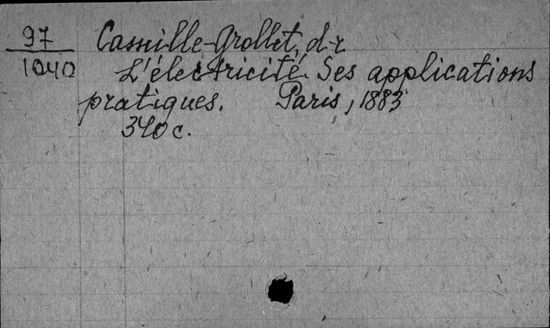 97 Camille-Grollet, d-r
1040 L'électricité. Ses applications
pratiques. Paris, 1883
340 c.